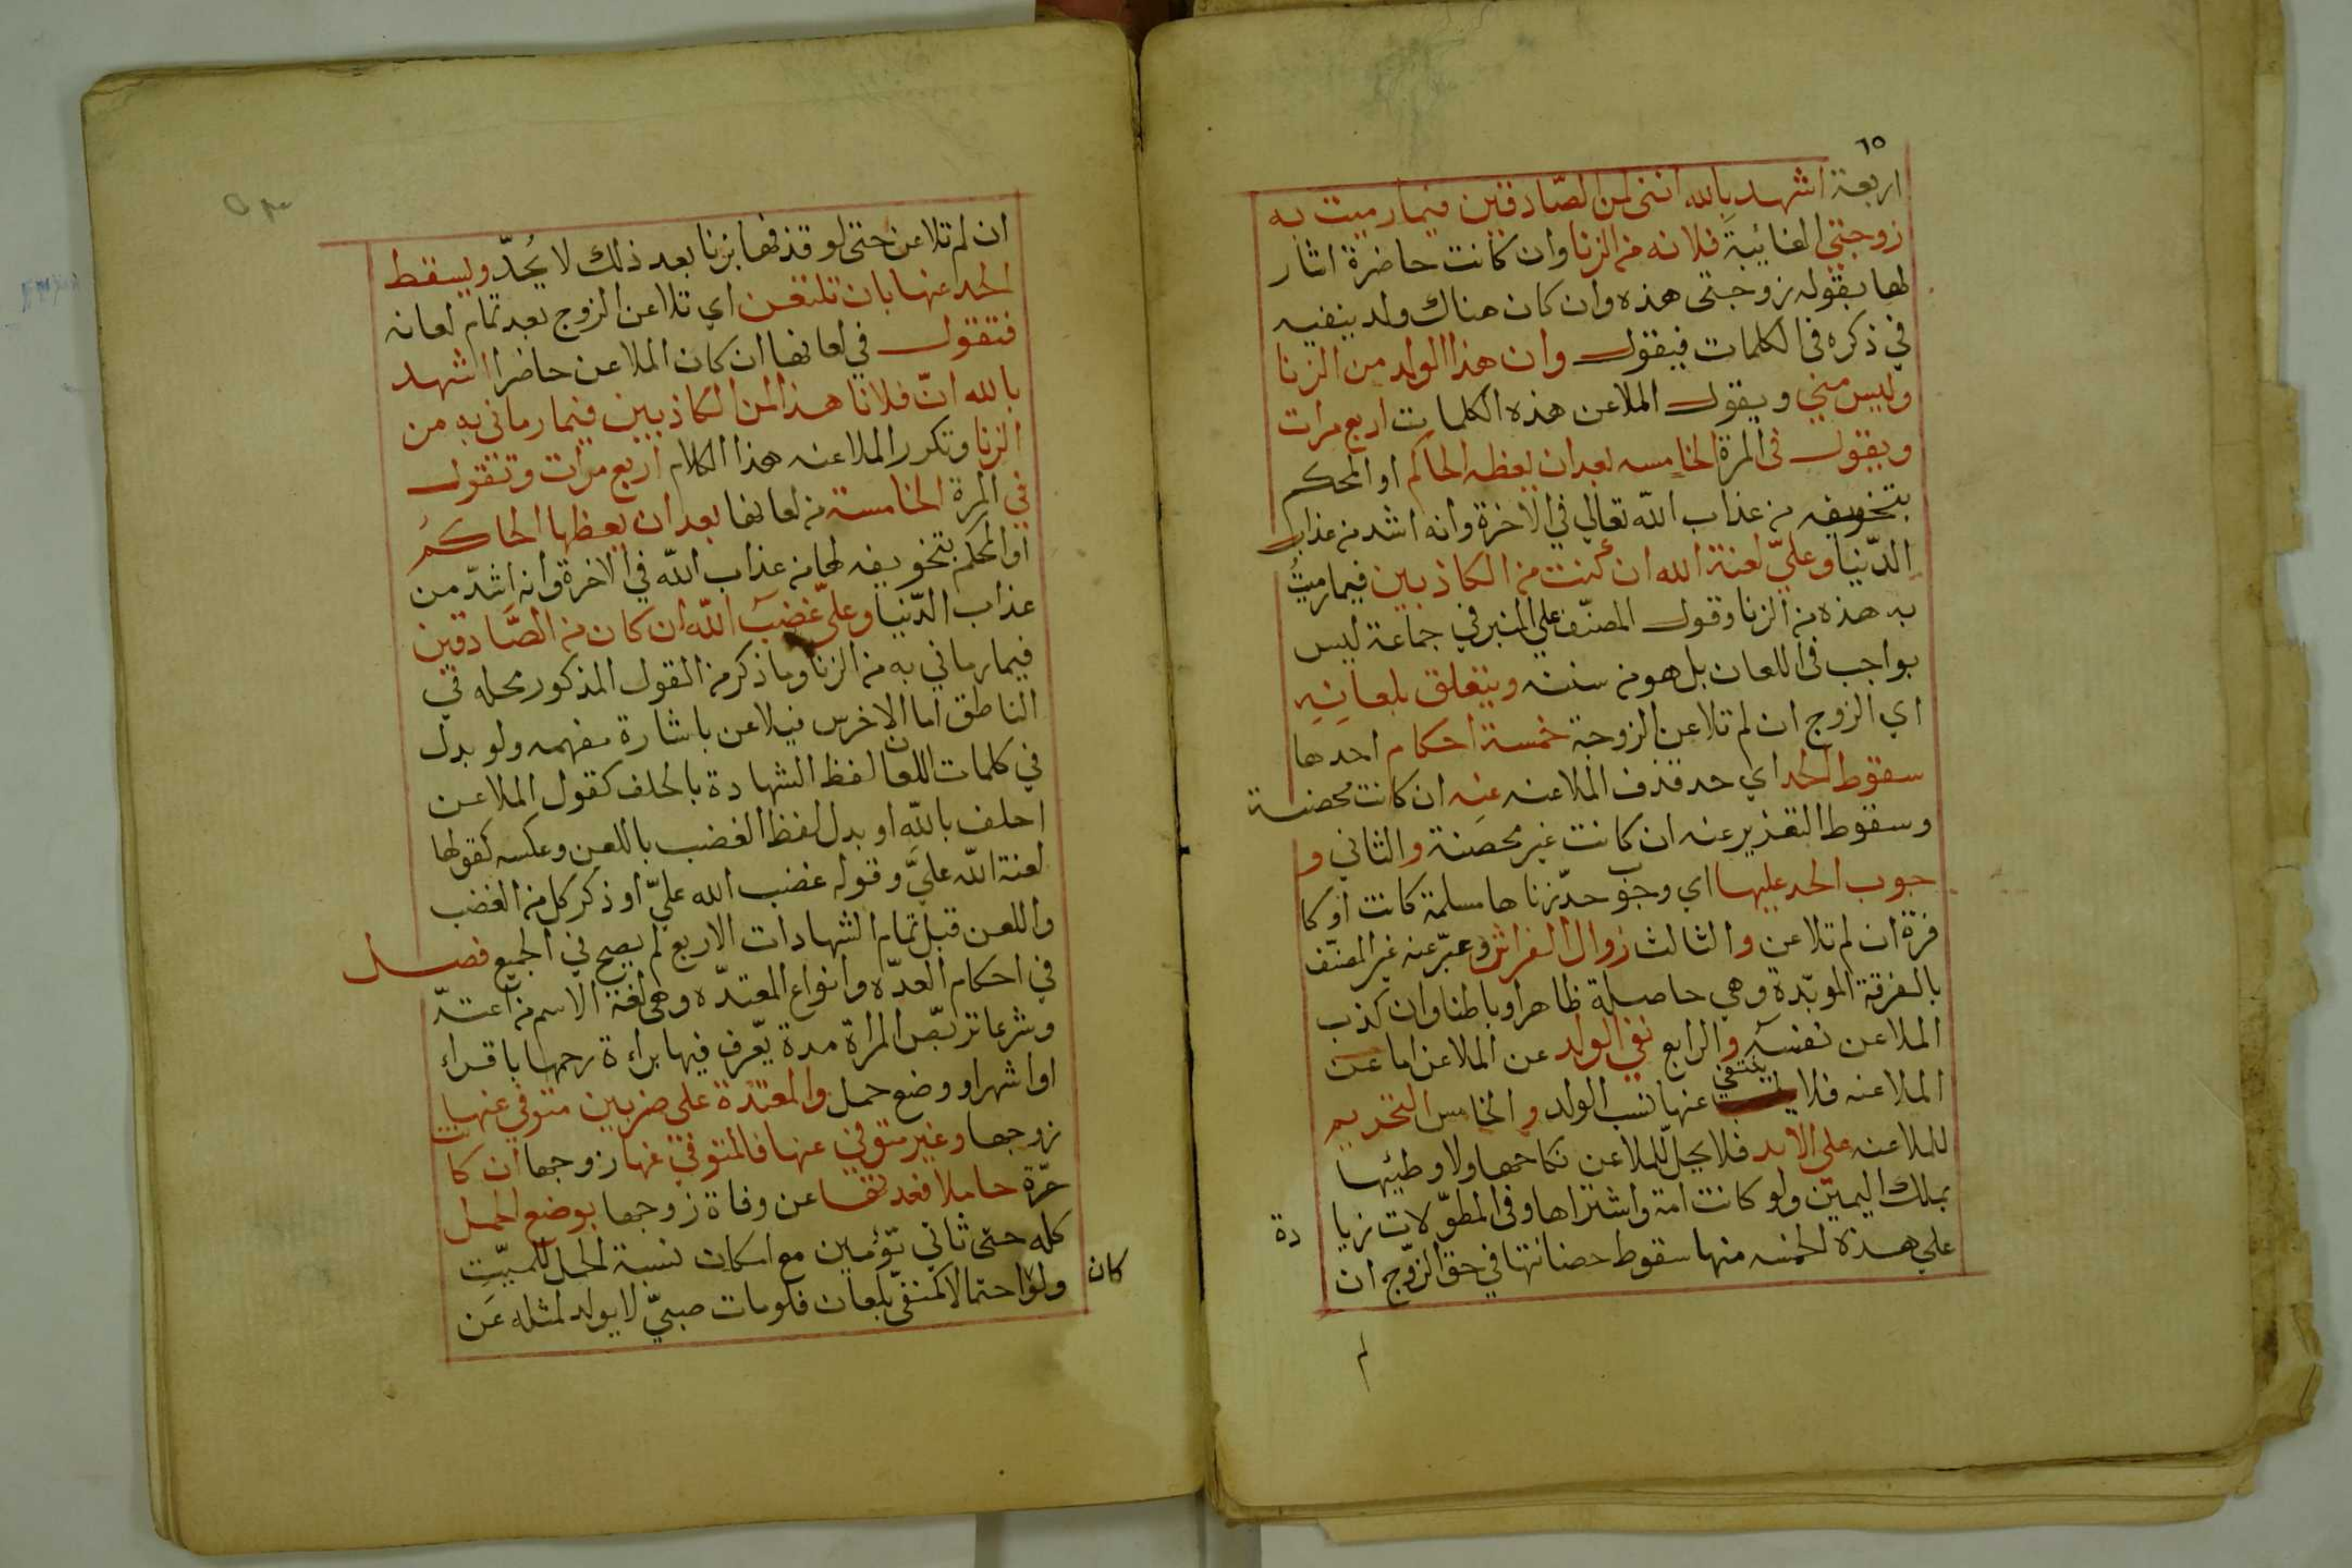 ٦٥
اربعة اشهد بالله انني لمن الصّادقين فيما رميت به
زوجتي الغائبة فلانه من الزنا وان كانت حاضرة اشار
لها بقوله زوجتى هذه وان كان هناك ولد ينفيه
في ذكره في الكلمات فيقول وان هذا الولد من الزنا
وليس مني ويقول الملاعن هذه الكلمات اربع مرات
ويقول فى المرة الخامسه بعد ان يعظه الحاكم او المحكم
بتخويفه من عذاب الله تعالي في الاخرة وانه اشد من عذاب
الدّنيا وعليّ لعنة الله ان كنت من الكاذبين فيما رميتُ
به هذه من الزنا وقول المصنّف علي المنبر في جماعة ليس
بواجب فى اللعان بل هو من سننه ويتعلق بلعانِهِ
اي الزوج ان لم تلاعن الزوجة خمسة احكام احدها
سقوط الحد اي حد قذف الملاعنه عنه ان كانت محصنة
وسقوط التعذير عنه ان كانت غير محصنة والثاني و
جوب الحد عليها اي وجوب حدّ زناها مسلمة كانت او كا
فرة ان لم تلاعن والثالث زوال الفراش وعبّر عنه غير المصنّف
بالفرقة الموبّدة وهي حاصلة ظاهرا وباطنا وان كذب
الملاعن نفسه والرابع نفي الولد عن الملاعن اما عن
الملاعنه فلا ينتفي عنها نسب الولد والخامس التحريم
للملاعنه علي الابد فلا يحلّ للملاعن نكاحها ولا وطيئها
بملك اليمين ولو كانت امة واشتراها وفى المطوّلات زيا
دة
علي هذه الخمسه منها سقوط حصانتها في حق الزّوج ان
لم
ان لم تلاعن حتى لو قذفها بزنا بعد ذلك لا يُحدّ ويسقط
الحد عنها بان تلتعن اي تلاعن الزوج بعد تمام لعانه
فتقول في لعانها ان كان الملاعن حاضرا اشهد
بالله انّ فلانا هذا لمن الكاذبين فيما رمانى به من
الزنا وتكرر الملاعنه هذا الكلام اربع مرات وتقول
في المرة الخامسة من لعانها بعد ان يعظها الحاكمُ
او المحكم بتخويفه لها من عذاب الله في الاخرة وانه اشدّ من
عذاب الدّنيا وعليّ غضبَ الله ان كان من الصَّادقين
فيما رماني به من الزنا وما ذكر من القول المذكور محله في
الناطق اما الاخرس فيلاعن باشارة مفهمه ولو بدل
في كلمات اللعان لفظ الشهادة بالحلف كقول الملاعن
احلف بالله او بدل لفظ الغضب باللعن وعكسه كقولها
لعنة الله عليَّ وقوله غضب الله عليّ او ذكر كل من الغضب
واللعن قبل تمام الشهادات الاربع لم يصح في الجميع فصل
في احكام العدّه وانواع المعتدّه وهى لغة الاسم من اعتدّ
وشرعا تربّص المراة مدة يعّرف فيها براءة رحمها باقراء
او اشهر او وضع حمل والمعتدّة على ضربين متوفي عنها
زوجها وغير متوفي عنها فالمتوفي عنها زوجها ان كانت
حرّة حاملا فعدتها عن وفاة زوجها بوضع الحمل
كله حتى ثاني توٴمين مع امكان نسبة الحمل للميّتِ
كان
ولو احتمالا كمنفي بلعان فلو مات صبيّ لا يولد لمثله عن